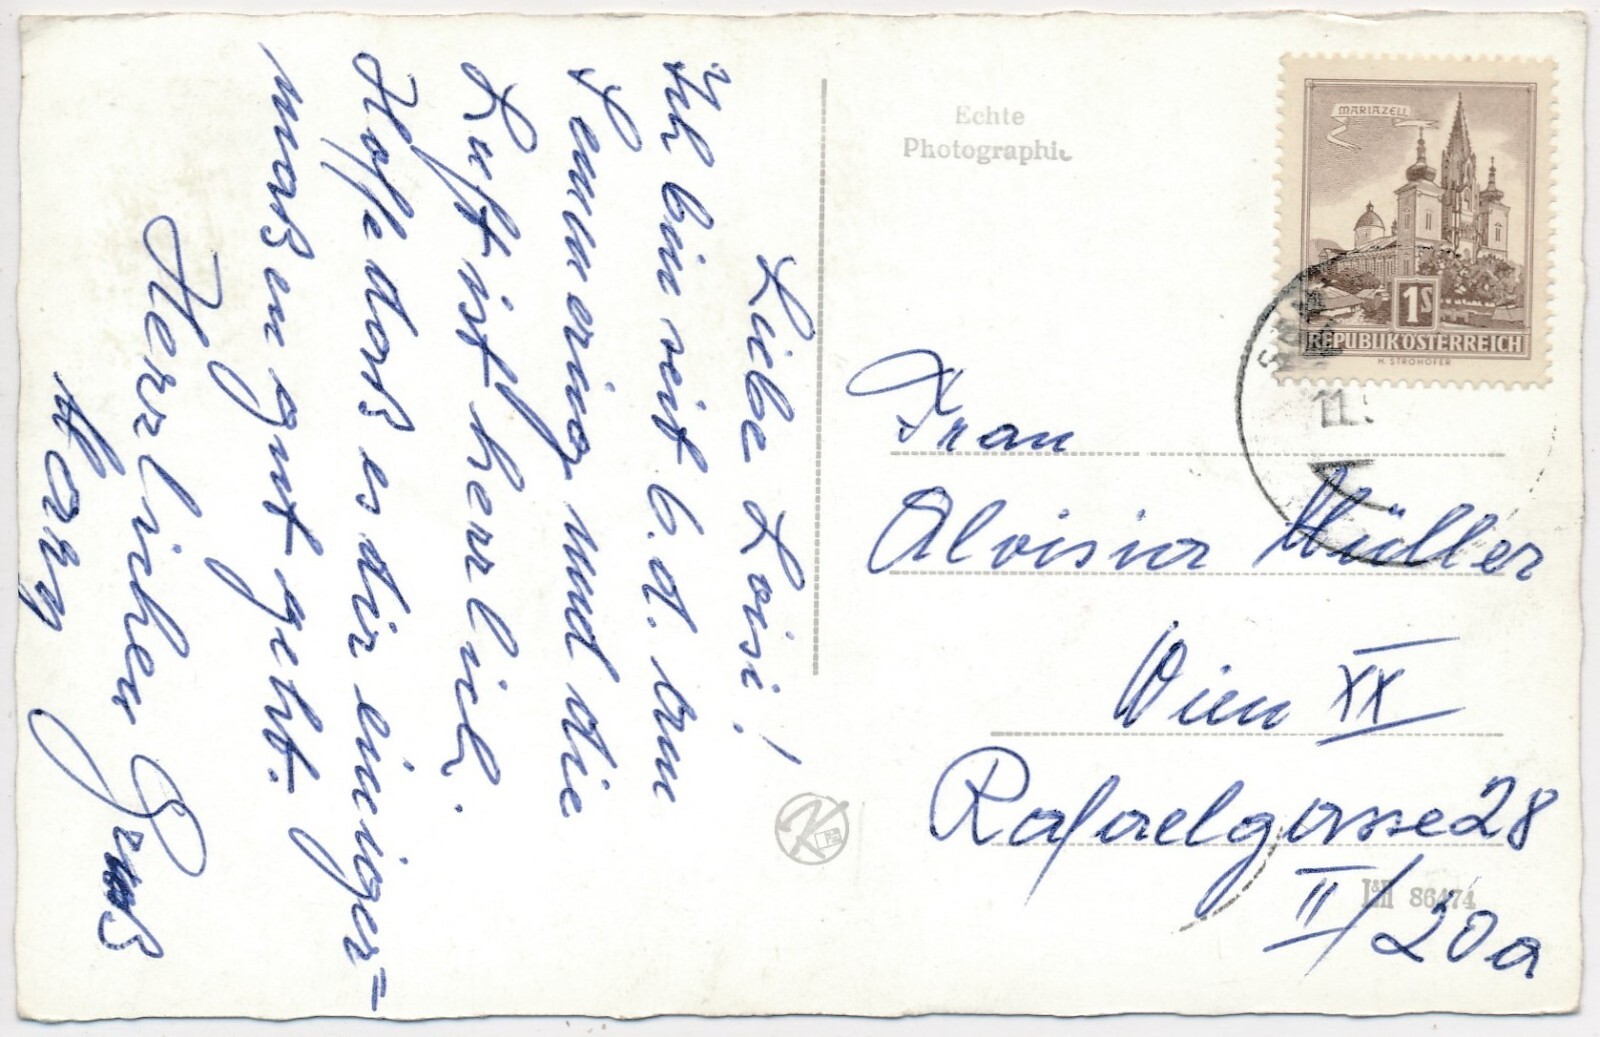 Liebe Loisi!
Ich bin seit 6. d. am
Semmering und die
Luft ist herrlich.
Hoffe daß es dir einiger=
maßen gut geht.
Herrlichen Gruß
Echte
Photographie
MARIAZELL
1S
REPUBLIK ÖSTERREICH
H. STROHOFER
11.
Frau
Aloisia Müller
Wien XX
Rafaelgasse 28
II/20a
L&H 86474
K